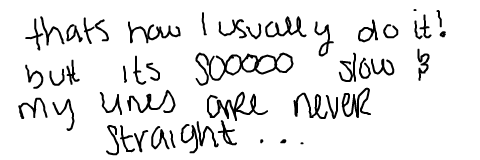 thats how I usually do it!
but its SOOOOO slow &
my lines are never
straight ...